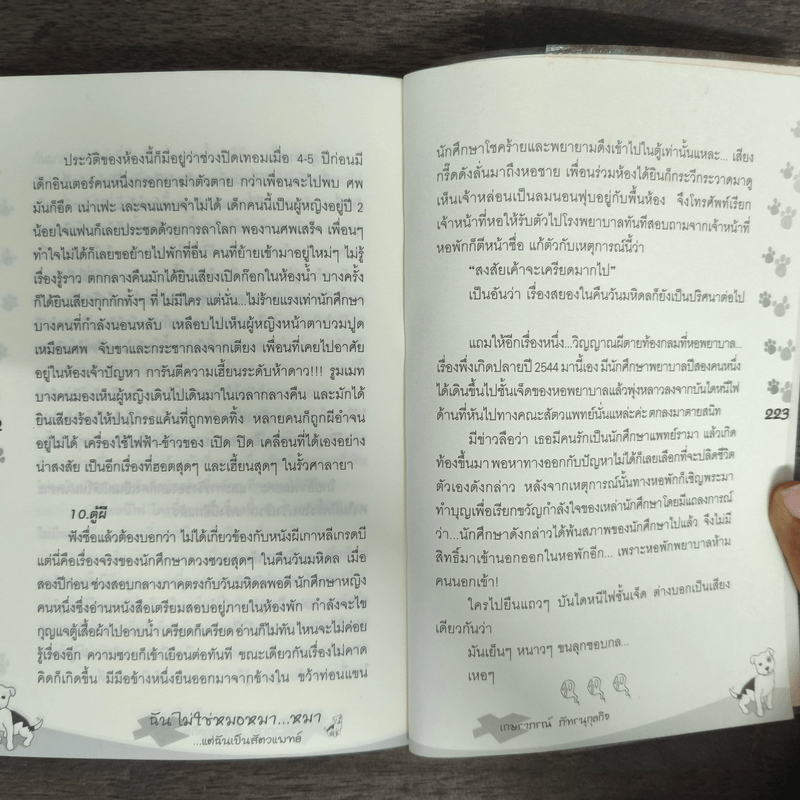 ประวัติของห้องนี้ก็มีอยู่ว่าช่วงปิดเทอมเมื่อ 4-5 ปีก่อนมี
เด็กอินเตอร์คนหนึ่งกรอกยาฆ่าตัวตาย กว่าเพื่อนจะไปพบ ศพ
มันก็อืด เน่าเฟะ เละจนแทบจำไม่ได้ เด็กคนนี้เป็นผู้หญิงอยู่ปี 2
น้อยใจแฟนก็เลยประชดด้วยการลาโลก พองานศพเสร็จ เพื่อนๆ
ทำใจไม่ได้ก็เลยขอย้ายไปพักที่อื่น คนที่ย้ายเข้ามาอยู่ใหม่ๆ ไม่รู้
เรื่องรู้ราว ตกกลางคืนมักได้ยินเสียงเปิดก๊อกในห้องน้ำ บางครั้ง
ก็ได้ยินเสียงกุกกักทั้งๆ ที่ไม่มีใคร แต่นั่น...ไม่ร้ายแรงเท่านักศึกษา
บางคนที่กำลังนอนหลับ เหลือบไปเห็นผู้หญิงหน้าตาบวมปูด
เหมือนศพ จับขาและกระชากลงจากเตียง เพื่อนที่เคยไปอาศัย
อยู่ในห้องเจ้าปัญหา การันตีความเฮี้ยนระดับห้าดาว!!! รูมเมท
บางคนมองเห็นผู้หญิงเดินไปเดินมาในเวลากลางคืน และมักได้
ยินเสียงร้องไห้ปนโกรธแค้นที่ถูกทอดทิ้ง หลายคนก็ถูกผีอำจน
อยู่ไม่ได้ เครื่องใช้ไฟฟ้า-ข้าวของ เปิด ปิด เคลื่อนที่ได้เองอย่าง
น่าสงสัย เป็นอีกเรื่องที่ฮอตสุดๆ และเฮี้ยนสุดๆ ในรั้วศาลายา
10.ตู้ผี
ฟังชื่อแล้วต้องบอกว่า ไม่ได้เกี่ยวข้องกับหนังผีเกาหลีเกรดบี
แต่นี่คือเรื่องจริงของนักศึกษาดวงซวยสุดๆ ในคืนวันมหิดล เมื่อ
สองปีก่อน ช่วงสอบกลางภาคตรงกับวันมหิดลพอดี นักศึกษาหญิง
คนหนึ่งซึ่งอ่านหนังสือเตรียมสอบอยู่ภายในห้องพัก กำลังจะไข
กุญแจตู้เสื้อผ้าไปอาบน้ำ เครียดก็เครียด อ่านก็ไม่ทัน ไหนจะไม่ค่อย
รู้เรื่องอีก ความซวยก็เข้าเยือนต่อทันที ขณะเดียวกันเรื่องไม่คาด
คิดก็เกิดขึ้น มีมือข้างหนึ่งยืนออกมาจากข้างใน ขว้าท่อนแขน
ฉันไม่ใช่หมอหมา...หมา
...แต่ฉันเป็นสัตวแพทย์
นักศึกษาโชคร้ายและพยายามดึงเข้าไปในตู้เท่านั้นแหละ... เสียง
กรี๊ดดังลั่นมาถึงหอชาย เพื่อนร่วมห้องได้ยินก็กระวีกระวาดมาดู
เห็นเจ้าหล่อนเป็นลมนอนฟุบอยู่กับพื้นห้อง จึงโทรศัพท์เรียก
เจ้าหน้าที่หอให้รับตัวไปโรงพยาบาลทันทีสอบถามจากเจ้าหน้าที่
หอพักก็ตีหน้าซื่อ แก้ตัวกับเหตุการณ์นี้ว่า
“สงสัยเค้าจะเครียดมากไป”
เป็นอันว่า เรื่องสยองในคืนวันมหิดลก็ยังเป็นปริศนาต่อไป
แถมให้อีกเรื่องหนึ่ง...วิญญาณผีตายท้องกลมที่หอพยาบาล...
เรื่องพึ่งเกิดปลายปี 2544 มานี้เอง มีนักศึกษาพยาบาลปีสองคนหนึ่ง
ได้เดินขึ้นไปชั้นเจ็ดของหอพยาบาลแล้วพุ่งหลาวลงจากบันไดหนีไฟ
ด้านที่หันไปทางคณะสัตวแพทย์นั่นแหล่ะค่ะ ตกลงมาตายสนิท
มีข่าวลือว่า เธอมีคนรักเป็นนักศึกษาแพทย์รามา แล้วเกิด
ท้องขึ้นมา พอหาทางออกกับปัญหาไม่ได้ก็เลยเลือกที่จะปลิดชีวิต
ตัวเองดังกล่าว หลังจากเหตุการณ์นั้นทางหอพักก็เชิญพระมา
ทำบุญเพื่อเรียกขวัญกำลังใจของเหล่านักศึกษาโดยมีแถลงการณ์
ว่า...นักศึกษาดังกล่าวได้พ้นสภาพของนักศึกษาไปแล้ว จึงไม่มี
สิทธิ์มาเข้านอกออกในหอพักอีก... เพราะหอพักพยาบาลห้าม
คนนอกเข้า!
ใครไปยืนแถวๆ บันไดหนีไฟชั้นเจ็ด ต่างบอกเป็นเสียง
เดียวกันว่า
มันเย็นๆ หนาวๆ ขนลุกชอบกล...
เหอๆ
223
เกษราภรณ์ ภัทรนุกูลกิจ